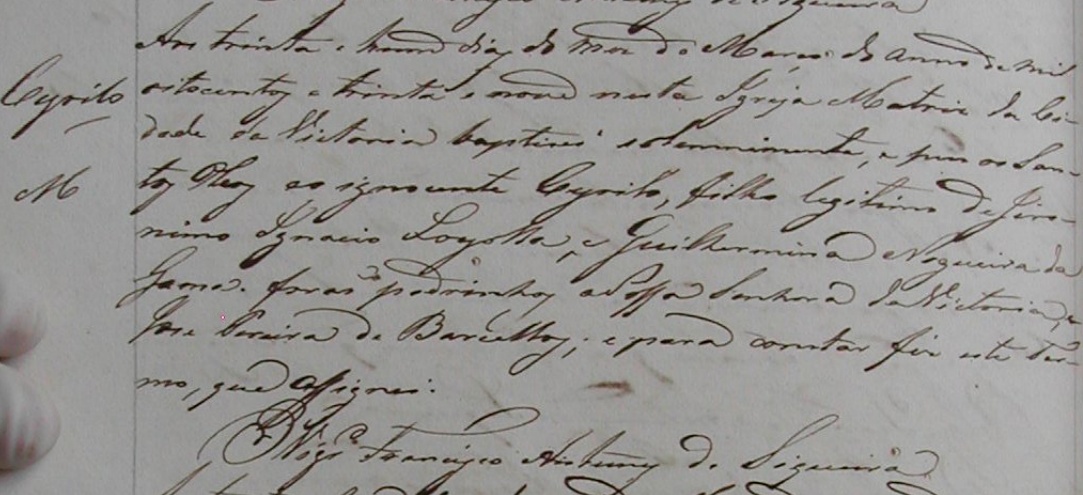 de Siqueira
Aos trinta e hum dias do mez de Março do anno de mil
Cyrilo oitocentos e trinta e nove nesta Igreja Matriz da Ci-
dade da Victoria baptizei solemnimente, e puz os San-
M tos Oleos ao ignocente Cyrilo, filho legitimo de Jero-
nimo Ignacio Loyolla, e Guilhermina Nogueira da
Gama. forão padrinhos a Nossa Senhora da Victoria, e
Jose Pereira de Barcellos, e para constar fiz este ter-
mo, que assignei.
O Vigrº Francisco Antunes de Siqueira